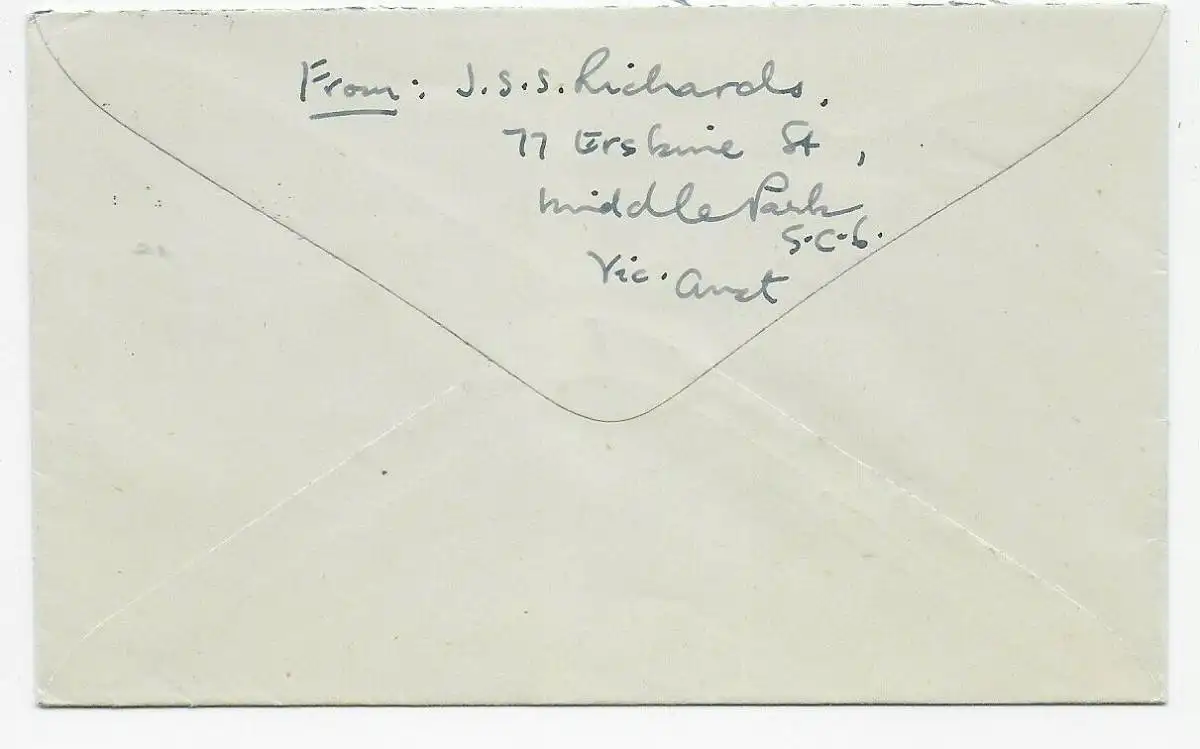 From: J.S.S. Richards.
77 Erskine St,
Middle Park
S.C.6.
Vic. Aust